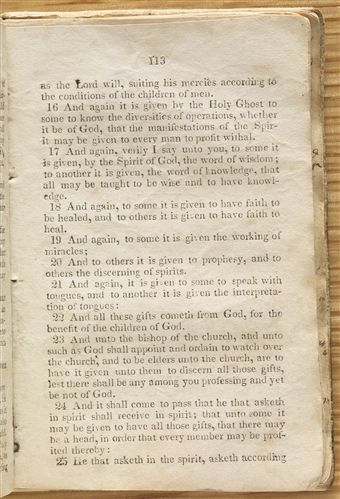 113
as the Lord will, suiting his mercies according to
the conditions of the children of men.
16 And again it is given by the Holy Ghost to
some to know the diversities of operations, whether
it be of God, that the manifestations of the Spir-
it may be given to every man to profit withal.
17 And again, verily I say unto you, to some it
is given, by the Spirit of God, the word of wisdom;
to another it is given, the word of knowledge, that
all may be taught to be wise and to have knowl-
edge.
18 And again, to some it is given to have faith to
be healed, and to others it is given to have faith to
heal.
19 And again, to some it is given the working of
miracles;
20 And to others it is given to prophesy, and to
others the discerning of spirits.
21 And again, it is given to some to speak with
tongues, and to another it is given the interpreta-
tion of tongues:
22 And all these gifts cometh from God, for the
benefit of the children of God.
23 And unto the bishop of the church, and unto
such as God shall appoint and ordain to watch over
the church, and to be elders unto the church, are to
have it given unto them to discern all those gifts,
lest there shall be any among you professing and yet
be not of God.
24 And it shall come to pass that he that asketh
in spirit shall receive in spirit; that unto some it
may be given to have all those gifts, that there may
be a head, in order that every member may be prof-
ited thereby:
25 He that asketh in the spirit, asketh according